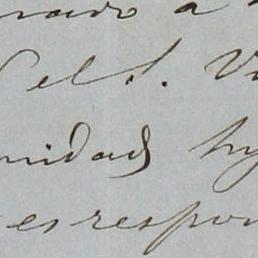 rado a
el S. V
nidad hy
es respon